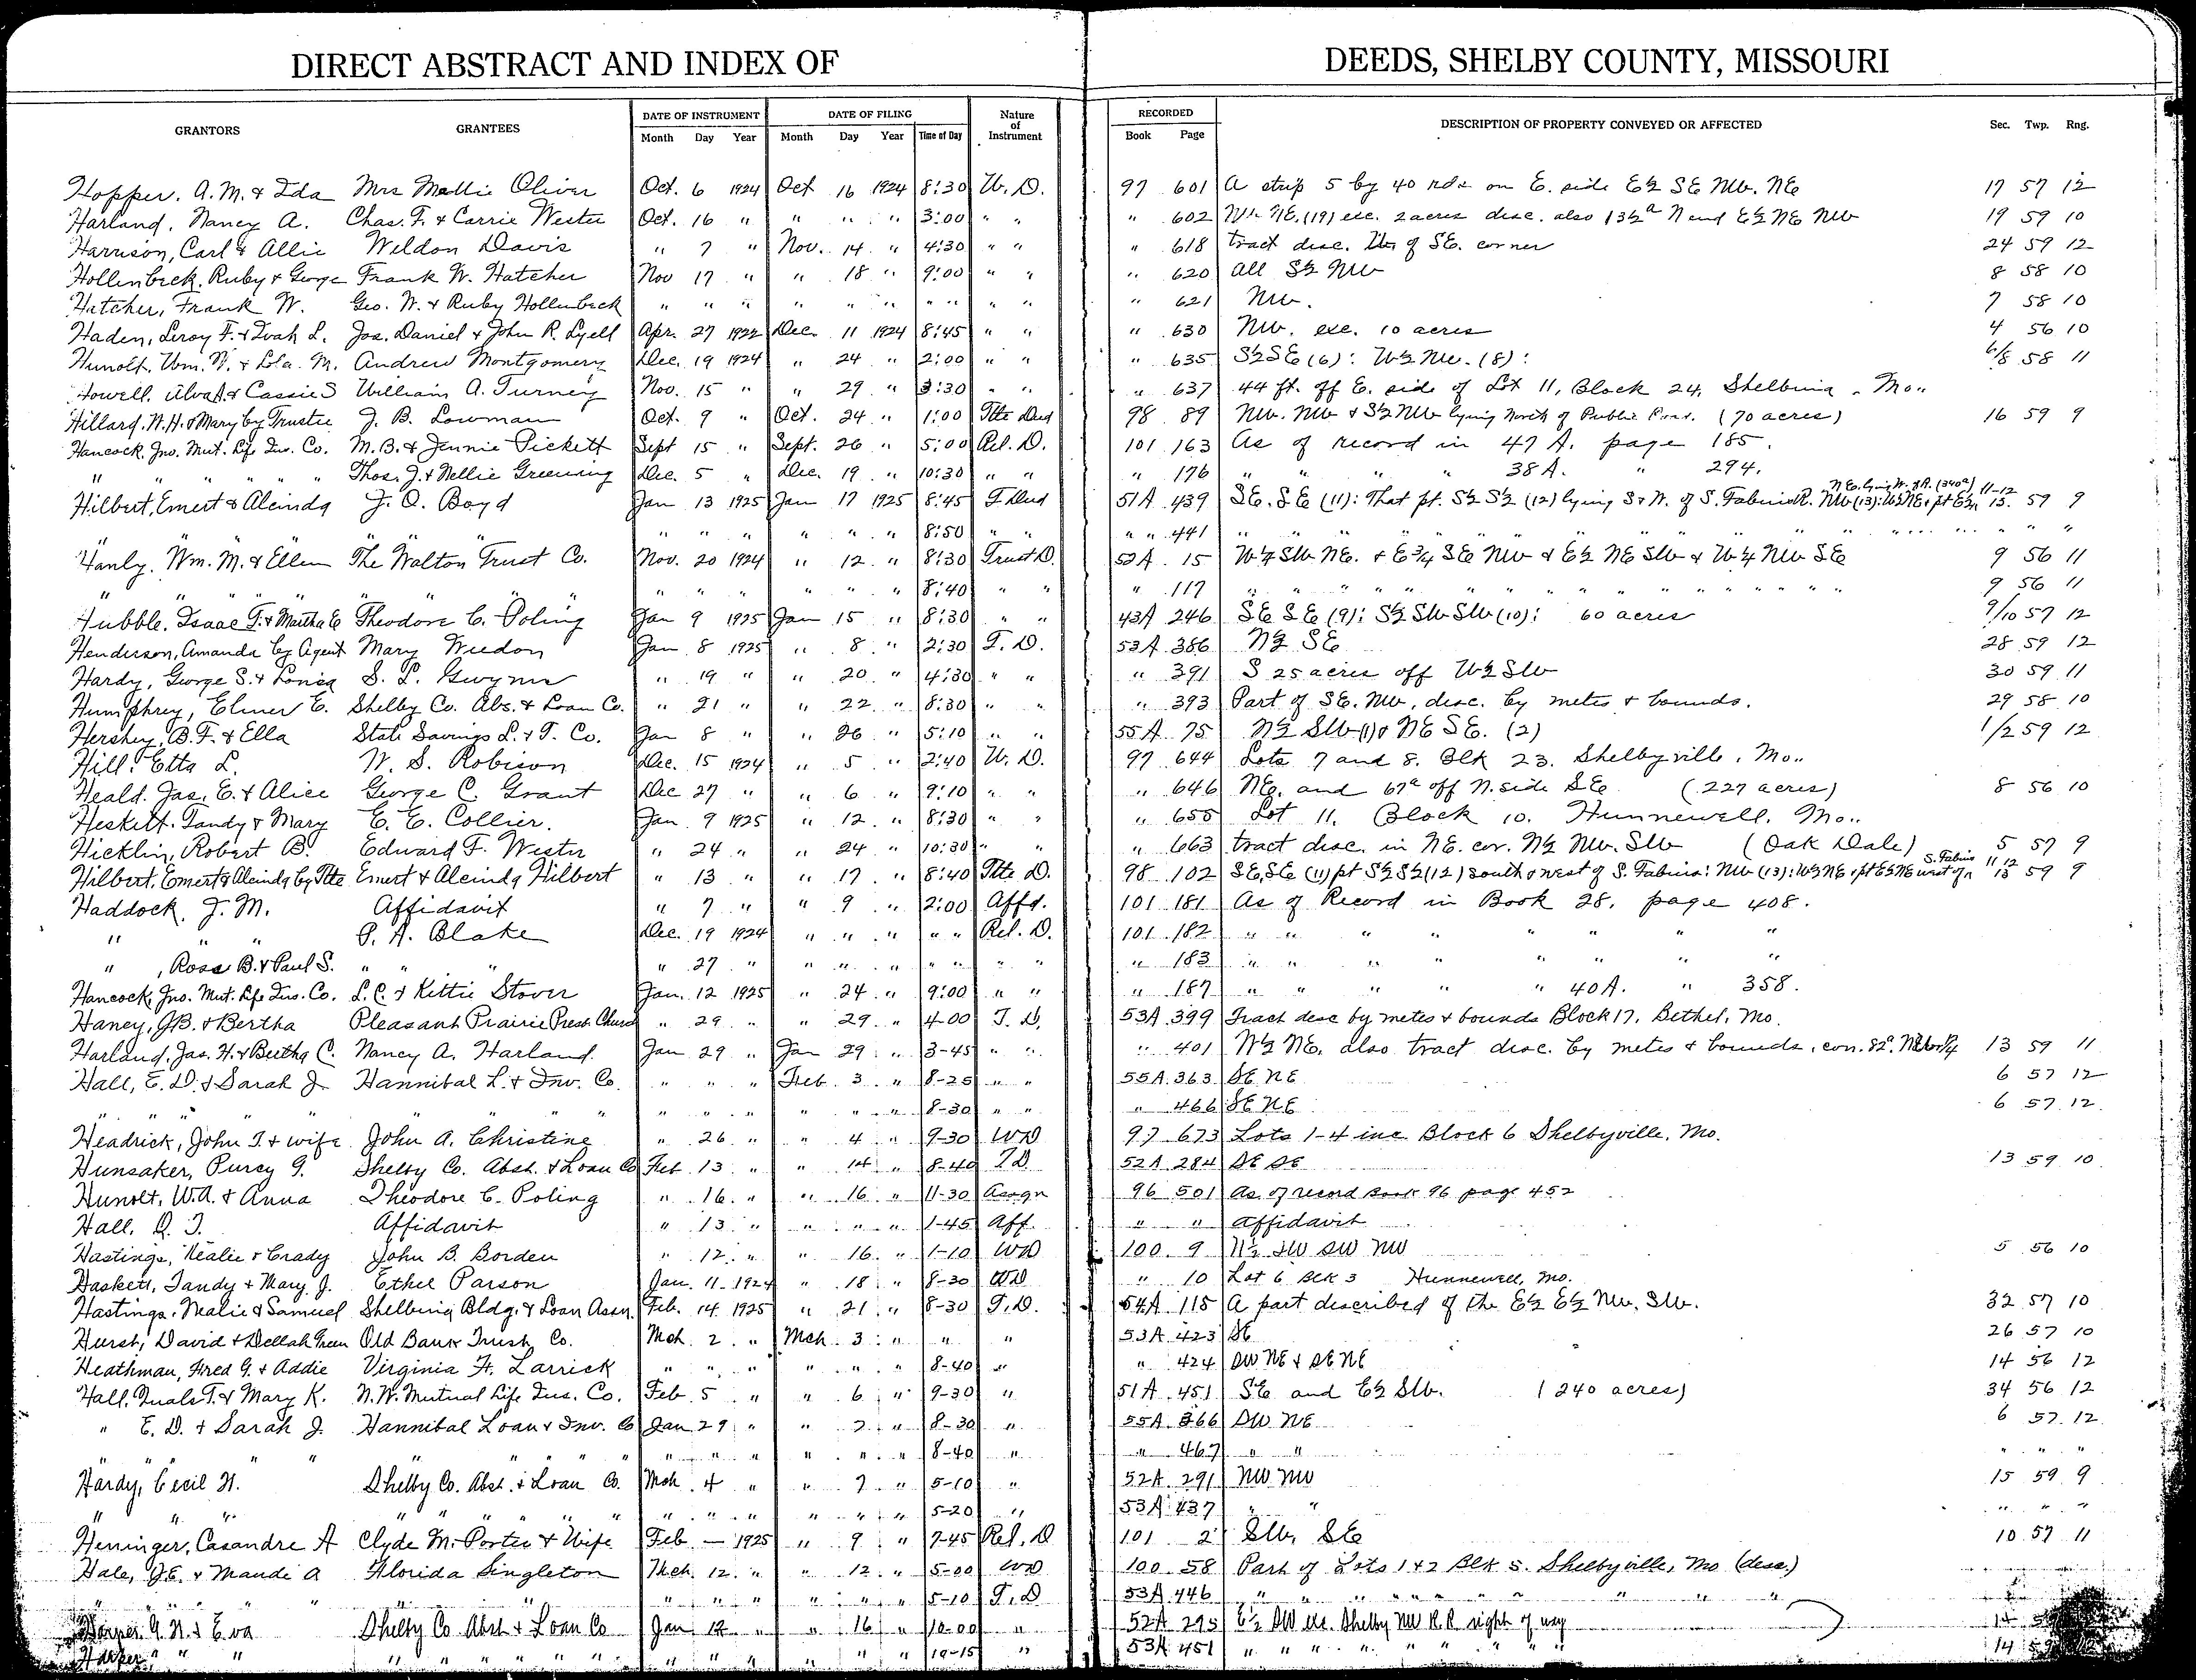 DIRECT ABSTRACT AND INDEX OF DEEDS, SHELBY COUNTY, MISSOURI
GRANTORS GRANTEES DATE OF INSTRUMENT DATE OF FILING Nature of Instrument RECORDED DESCRIPTION OF PROPERTY CONVEYED OR AFFECTED Sec. Twp. Rng.
Month Day Year Month Day Year Time of Day Book Page
Hopper. A. M. & Ida Mrs Mollie Oliver Oct. 6 1924 Oct 16 1924 8:30 W. D. 97 601 A strip 5 by 40 rds on E. side E½ SE NW. NE 17 57 12
Harland, Nancy A. Chas. F. & Carrie Wester Oct. 16 " " " " 3:00 " " " 602 NE. (19) exc. 2 acres desc. also 13½ᵃ N end E½ NE NW 19 59 10
Harrison, Carl & Allie Weldon Davis " 7 " Nov. 14 " 4:30 " " " 618 tract desc. of SE. corner 24 59 12
Hollenbeck. Ruby & George Frank W. Hatcher Nov 17 " " 18 " 9:00 " " " 620 all S½ NW 8 58 10
Hatcher, Frank W. Geo. W. & Ruby Hollenbeck " " " " " " " " " " " 621 NW. 7 58 10
Haden, Leroy F. & Ivah L. Jos. Daniel & John R. Lyell Apr. 27 1922 Dec. 11 1924 8:45 " " " 630 NW. exc. 10 acres 4 56 10
Hunolt, Wm. N. & Lola. M. Andrew Montgomery Dec. 19 1924 " 24 " 2:00 " " " 635 S½ SE (6): W½ NW. (8): 6/8 58 11
Howell. Alva A. & Cassie S William A. Turney Nov. 15 " " 29 " 3:30 " " " 637 44 ft. off E. side of Lot 11, Block 24, Shelbina, Mo..
Hillard. N. H. & Mary by Trustee J. B. Lowman Oct. 9 " Oct. 24 " 1:00 Tte Deed 98 89 NW. NW & S½ NW lying North of Public Road. (70 acres) 16 59 9
Hancock. Jno. Mut. Life Ins. Co. M. B. & Jennie Pickett Sept 15 " Sept. 26 " 5:00 Rel. D. 101 163 As of record in 47 A. page 185.
" " " " " Thos. J. & Nellie Greening Dec. 5 " Dec. 19 " 10:30 " " " 176 " " " " 38 A. " 294.
Hilbert, Emert & Aleinda J. Q. Boyd Jan 13 1925 Jan 17 1925 8:45 T. Deed 51A 439 SE. SE (11): That pt. S½ S½ (12) lying S & W. of S. Fabius R. NW (13): W½ NE & pt E½ NE. lying W. of R. (340ᵃ) 11-12 13. 59 9
" " " " " " 8:50 " " " 441 " " " " " "
Hanly. Wm. M. & Ellen The Walton Trust Co. Nov. 20 1924 " 12 " 8:30 Trust D. 52A 15 W¼ SW NE. & E¾ SE NW & E½ NE SW & W¼ NW SE 9 56 11
" " " " " " 8:40 " " " 117 " " " " 9 56 11
Hubble. Isaac T. & Martha E Theodore C. Poling Jan 9 1925 Jan 15 " 8:30 " " 43A 246 SE SE (9): S½ SW SW (10): 60 acres 9/10 57 12
Henderson, Amanda by Agent Mary Weedon Jan 8 1925 " 8 " 2:30 T. D. 53A 386 N½ SE 28 59 12
Hardy, George S. & Lonea S. L. Gwynn " 19 " " 20 " 4:30 " " " 391 S 25 acres off W½ SW 30 59 11
Humphrey, Elmer E. Shelby Co. Abs. & Loan Co. " 21 " " 22 " 8:30 " " " 393 Part of SE. NW, desc. by metes & bounds. 29 58 10
Hershey, B. F. & Ella State Savings L. & T. Co. Jan 8 " " 26 " 5:10 " " 55A 75 N½ SW (1) & NE SE. (2) 1/2 59 12
Hill. Etta L. W. S. Robison Dec. 15 1924 " 5 " 2:40 W. D. 97 644 Lots 7 and 8. Blk 23. Shelbyville, Mo..
Heald. Jas. E. & Alice George C. Grant Dec 27 " " 6 " 9:10 " " " 646 NE. and 67ᵃ off N. side SE (227 acres) 8 56 10
Heskett. Tandy & Mary E. E. Collier. Jan. 9 1925 " 12 " 8:30 " " " 655 Lot 11. Block 10. Hunnewell, Mo..
Hicklin, Robert B. Edward F. Wester " 24 " " 24 " 10:30 " " " 663 tract desc. in NE. cor. N½ NW. SW (Oak Dale) 5 57 9
Hilbert. Emert & Aleinda by Tte Emert & Aleinda Hilbert " 13 " " 17 " 8:40 Tte D. 98 102 SE, SE (11) pt S½ S½ (12) south & west of S. Fabius: NW (13): W½ NE & pt E½ NE west of S. Fabius 11 12 13 59 9
Haddock, J. M. Affidavit " 7 " " 9 " 2:00 Affd. 101 181 As of Record in Book 28, page 408.
" " " P. A. Blake Dec. 19 1924 " " " " " Rel. D. 101 182 " " " " " " " "
" , Ross B. & Paul S. " " " 27 " " " " " " " " " 183 " " " " " " " "
Hancock, Jno. Mut. Life Ins. Co. L. C. & Kittie Stover Jan. 12 1925 " 24 " 9:00 " " " 187 " " " " " 40 A. " 358.
Haney, J. B. & Bertha Pleasant Prairie Presb. Church " 29 " " 29 " 4-00 T. D. 53A 399 Tract desc by metes & bounds Block 17, Bethel, Mo.
Harland, Jas. H. & Bertha C. Nancy A. Harland. Jan 29 " Jan 29 " 3-45 " " " 401 N½ NE. also tract desc. by metes & bounds, con. 82ᵃ. 13 59 11
Hall, E. D. & Sarah J. Hannibal L. & Inv. Co. " " " Feb 3 " 8-25 " " 55A 363 SE NE 6 57 12
" " " " " " " " 8-30 " " " 466 SE NE 6 57 12
Headrick, John T. & wife John A. Christine " 26 " " 4 " 9-30 WD 97 673 Lots 1-4 inc. Block 6 Shelbyville, Mo.
Hunsaker, Purcy G. Shelby Co. Abst. & Loan Co Feb. 13 " " 14 " 8-40 TD 52A 284 SE SE 13 59 10
Hunolt, W. A. & Anna Theodore C. Poling " 16 " " 16 " 11-30 Assgn 96 501 As of record Book 96 page 452
Hall, Q. T. Affidavit " 13 " " " " 1-45 Aff. " " Affidavit
Hastings, Nealie & Grady John B. Borden " 12 " " 16 " 1-10 WD 100 9 N½ SW SW NW 5 56 10
Haskett, Tandy & Mary J. Ethel Parson Jan. 11 1924 " 18 " 8-30 WD " 10 Lot 6 Blk 3 Hunnewell, Mo.
Hastings. Nealie & Samuel Shelbina Bldg. & Loan Assn. Feb. 14 1925 " 21 " 8-30 T. D. 54A 115 A part described of the E½ E½ NW. SW. 32 57 10
Hurst, David & Dellah Green Old Bank Trust Co. Mch. 2 " Mch. 3 " " " 53A 423 SE 26 57 10
Heathman, Fred G. & Addie Virginia H. Larrick " " " " " " 8-40 " " 424 SW NE & SE NE 14 56 12
Hall, Quals T. & Mary K. N. W. Mutual Life Ins. Co. Feb 5 " " 6 " 9-30 " 51A 451 SE and E½ SW. (240 acres) 34 56 12
" E. D. & Sarah J. Hannibal Loan & Inv. Co Jan 29 " " 7 " 8-30 " 55A 366 SW NE 6 57 12
" " " " " " " " 8-40 " " 467 " " " " "
Hardy, Cecil H. Shelby Co. Abst. & Loan Co. Mch. 4 " " 7 " 5-10 " 52A 291 NW NW 15 59 9
" " " " " " " " 5-20 " 53A 437 " " " " "
Heninger, Casandre A Clyde M. Porter & Wife Feb — 1925 " 9 " 7-45 Rel. D 101 2 SW, SE 10 57 11
Hale, J. E. & Maude A Florida Singleton Mch. 12 " " 12 " 5-00 WD 100 58 Part of Lots 1 & 2 Blk 5. Shelbyville, Mo (desc.)
" " " " " " " " 5-10 T. D 53A 446 " " " " "
Harper G. N. & Eva Shelby Co Abst & Loan Co Jan 12 " " 16 " 10-00 " 52A 295 E½ SW Shelby NW R. R right of way 14
Harper " " " " " " " " " " 10-15 " 53A 451 " " " " " " " 14